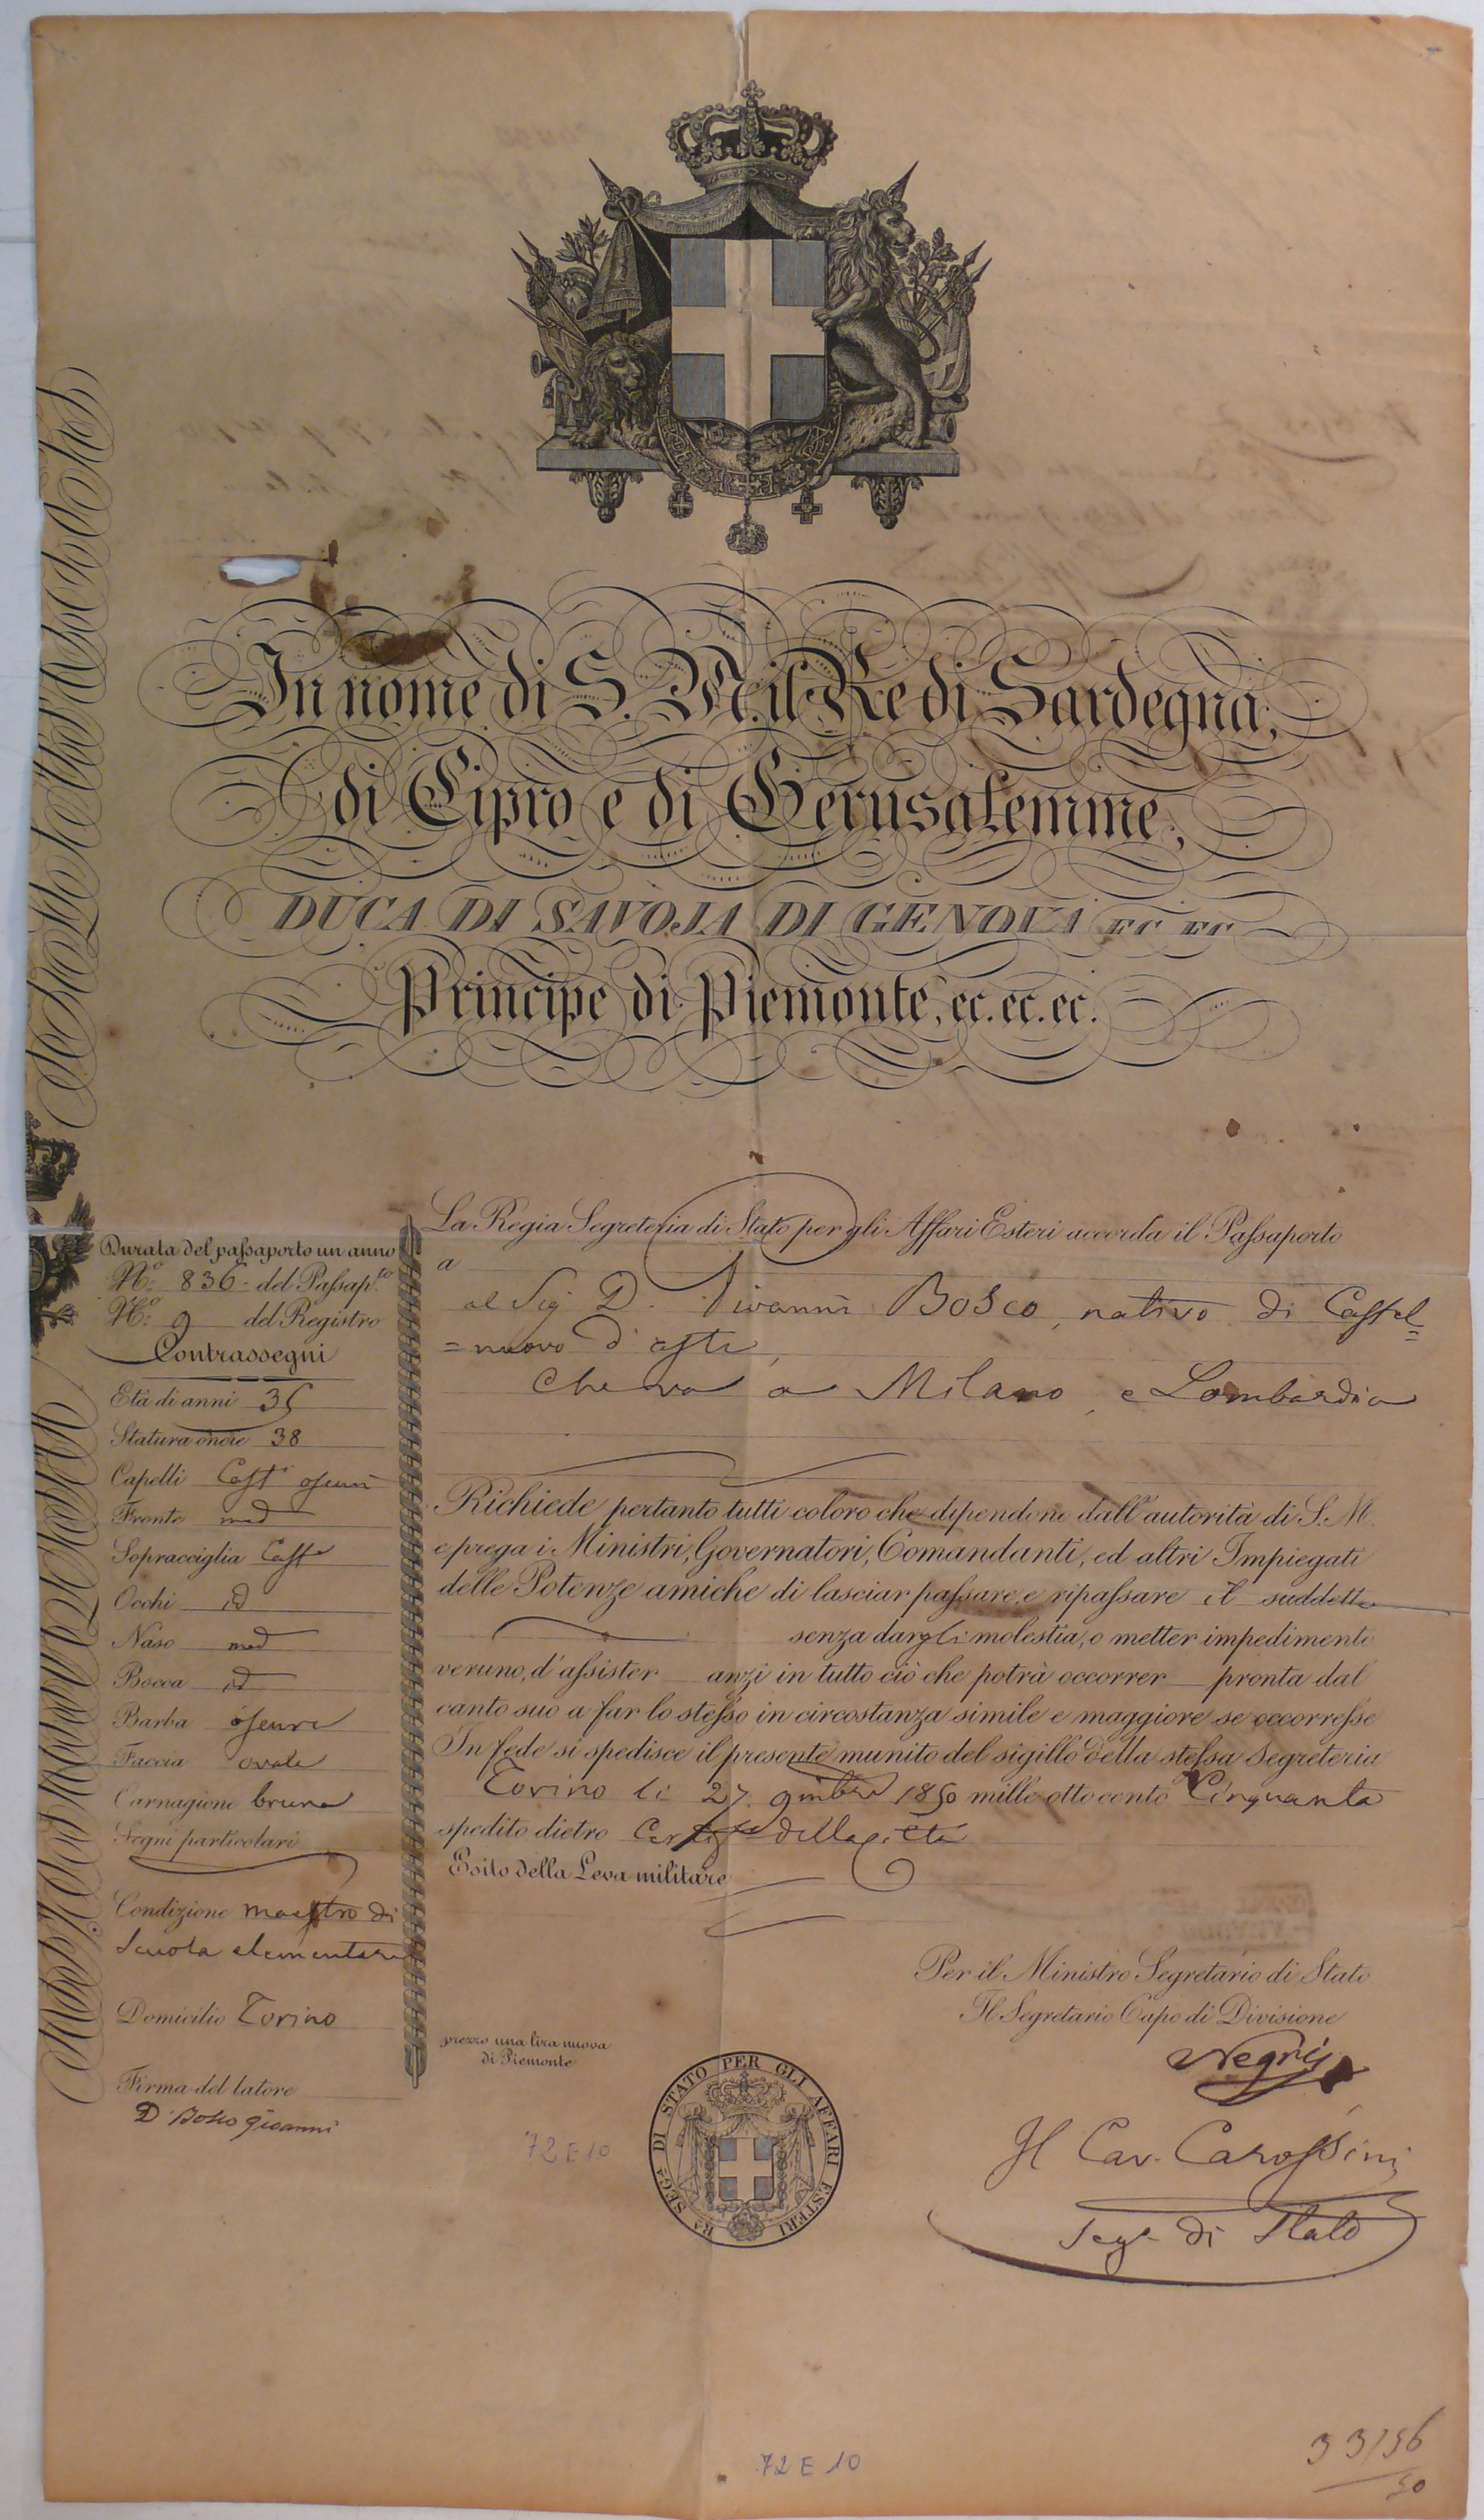 In nome di S. M. il Re di Sardegna,
di Cipro e di Gerusalemme,
DUCA DI SAVOJA DI GENOVA EC EC
Principe di Piemonte, ec. ec. ec.
Durata del passaporto un anno
N.º 836 del Passap.to
N.º 9 del Registro
Contrassegni
Età di anni 35
Statura oncie 38
Capelli Cast oscuri
Fronte med
Sopracciglia Cast
Occhi id
Naso med
Bocca id
Barba oscura
Faccia ovale
Carnagione bruna
Segni particolari
Condizione maestro di
Scuola elementare
Domicilio Torino
Firma del latore
D. Bosco Gioanni
La Regia Segreteria di Stato per gli Affari Esteri accorda il Passaporto
a
al Sig D. Giovanni Bosco, nativo di Castel=
=nuovo d'asti,
che va a Milano, e Lombardia
Richiede pertanto tutti coloro che dipendono dall'autorità di S. M.
e prega i Ministri, Governatori, Comandanti, ed altri Impiegati
delle Potenze amiche di lasciar passare, e ripassare il suddetto
senza dargli molestia, o metter impedimento
veruno, d'assister anzi in tutto ciò che potrà occorrer pronta dal
canto suo a far lo stesso in circostanza simile e maggiore se occorresse
In fede si spedisce il presente munito del sigillo della stessa Segreteria
Torino li 27 9mbre 1850 mille ottocento Cinquanta
spedito dietro della città
Esito della Leva militare
prezzo una lira nuova
di Piemonte
Per il Ministro Segretario di Stato
Il Segretario Capo di Divisione
Negri
Il Cav. Carossini
Seg. di Stato
RA SEGA DI STATO PER GLI AFFARI ESTERI
72 E 10
72 E 10